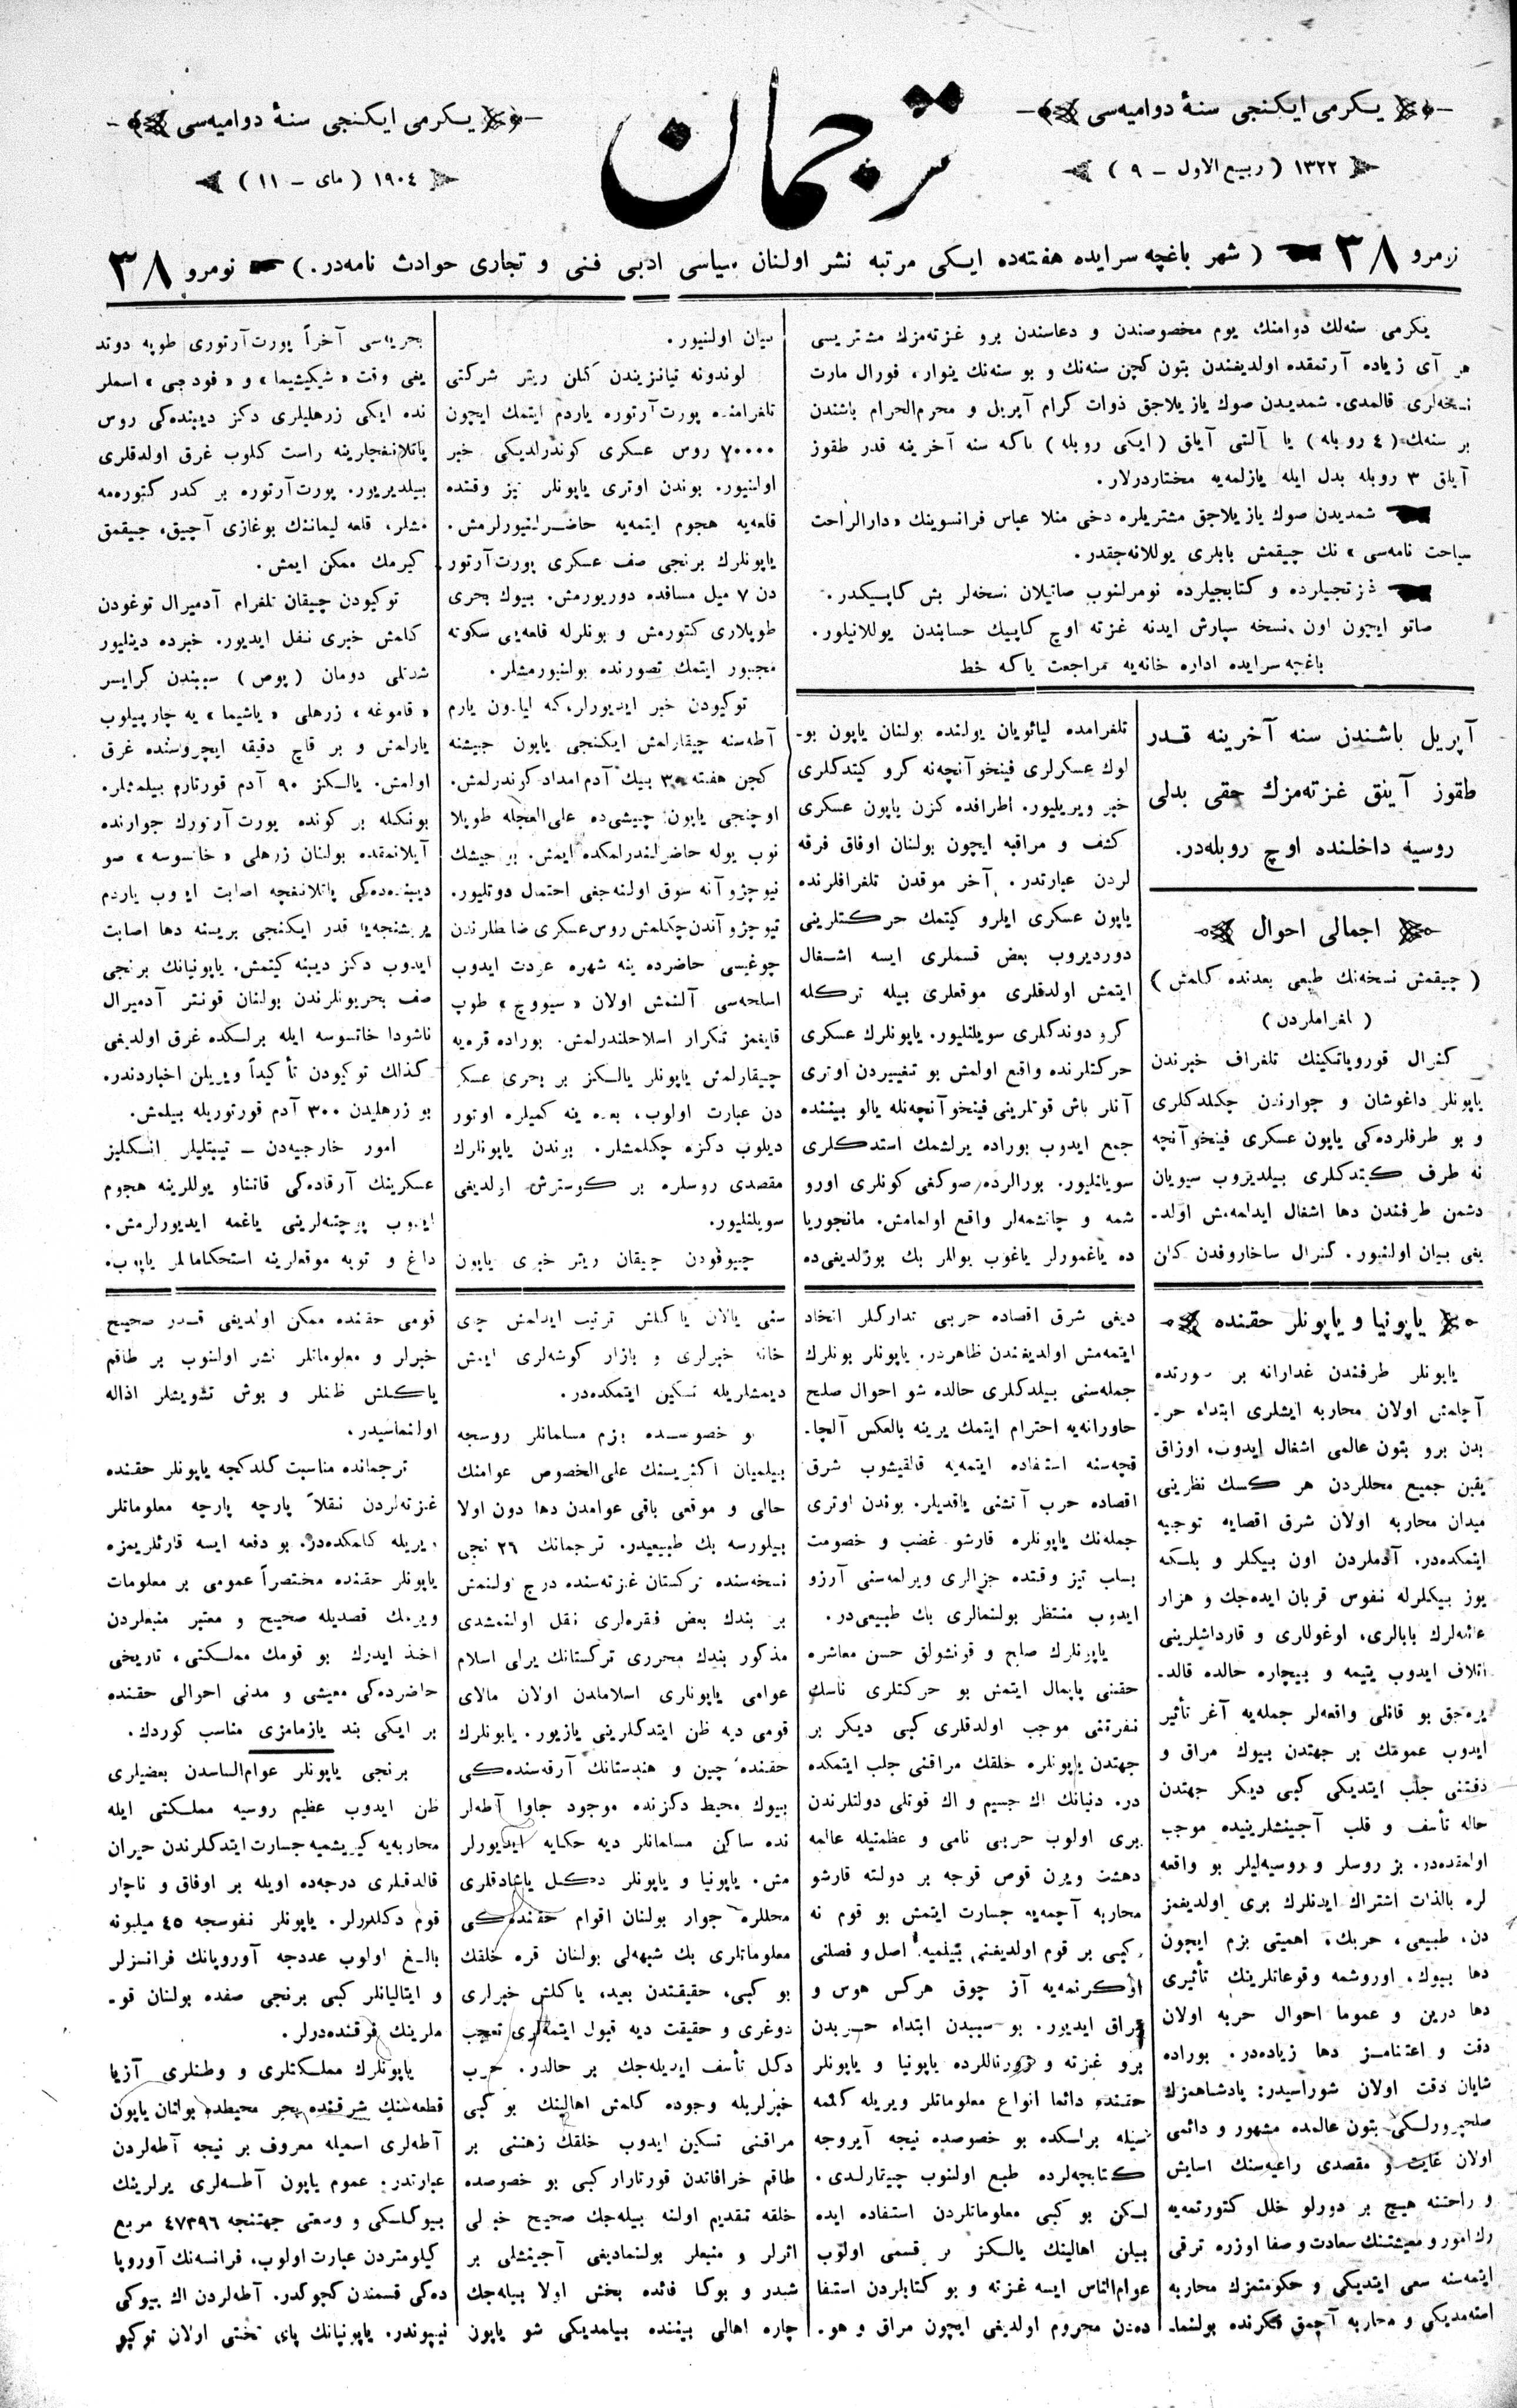 یكرمی ایكنجی سنۀ دوامیه‌سی
ترجمان
یكرمی ایكنجی سنۀ دوامیه‌سی
١٣٢٢ ( ربیع الاول ـ ٩ )
١٩٠٤ ( مای ـ ١١ )
نومرو ٣٨ ( شهر باغچه سرایده هفته‌ده ایكی مرتبه نشر اولنان سیاسی ادبی فنی و تجاری حوادث نامه‌در. ) نومرو ٣٨
یكرمی سنه‌لك دوامنك، یوم مخصوصندن و دعاسندن برو غزته‌مزك مشتریسی
هر آی زیاده آرتمقده اولدیغندن بتون كچن سنه‌نك و بو سنه‌نك ینوار، فورال مارت
نسخه‌لری قالمدی. شمدیدن صوك یازیلاجق ذوات كرام آپریل و محرم‌الحرام باشندن
بر سنه‌لك ( ٤ روبله ) یا آلتی آیلق ( ایكی روبله ) یاكه سنه آخرینه قدر طقوز
آیلق ٣ روبله بدل ایله یازلمه‌یه مختاردرلار.
شمدیدن صوك یازیلاجق مشتریلره دخی منلا عباس فرانسوینك « دارالراحت
سیاحت نامه‌سی » نك چیقمش بابلری یوللانه‌جقدر.
غزتجیلرده و كتابجیلرده نومرلنوب صاتیلان نسخه‌لر بش كاپیكدر.
صاتو ایچون اون نسخه سپارش ایدنه غزته اوچ كاپیك حسابندن یوللانیلور.
باغچه سرایده اداره خانه‌یه مراجعت یاكه خط
آپریل باشندن سنه آخرینه قدر
طقوز آیلق غزته‌مزك حقی بدلی
روسیه داخلنده اوچ روبله‌در.
اجمالی احوال
( چیقمش نسخه‌نك طبعی بعدنده كلمش )
( تلغراملردن )
كنرال قوروپاتكینك تلغراف خبرندن
یاپونلر داغوشان و جوارندن چكلدكلری
و بو طرفلرده‌كی یاپون عسكری فینخوآنچه
نه طرف كیتدكلری بیلدیروب سیویان
دشمن طرفندن دها اشغال ایدلمه‌مش اولد.
یغی بیان اولنیور. كنرال ساخاروفدن كلن
تلغرامده لیائویان یولنده بولنان یاپون بو.
لوك عسكرلری فینخوآنچه‌نه كرو كیتدكلری
خبر ویریلیور. اطرافده كزن یاپون عسكری
كشف و مراقبه ایچون بولنان اوفاق فرقه
لردن عبارتدر. آخر موقدن تلغرافلرنده
یاپون عسكری ایلرو كیتمك حركتلرینی
دوردیروب بعض قسملری ایسه اشغال
ایتمش اولدقلری موقعلری بیله تركله
كرو دوندكلری سویلنلیور. یاپونلرك عسكری
حركتلرنده واقع اولمش بو تغییردن اوتری
آنلر باش قوتلرینی فینخوآنچه‌نله یالو بیننده
جمع ایدوب بوراده یرلشمك استدكلری
سویلنلیور. بورالرده صوكغی كونلری اورو
شمه و چاتشمه‌لر واقع اولمامش. مانجوریا
ده یاغمورلر یاغوب یوللر بك بوزلدیغی‌ده
بیان اولنیور.
لوندونه تیانزیندن كلن ریتر شركتی
تلغرامنده پورت آرتوره یاردم ایتمك ایچون
٧٠٠٠٠ روس عسكری كوندرلدیكی خبر
اولنیور. بوندن اوتری یاپونلر تیز وقتده
قلعه‌یه هجوم ایتمه‌یه حاضرلنیورلرمش.
یاپونلرك برنجی صف عسكری پورت آرتور
دن ٧ میل مسافده دوریورمش. بیوك بحری
طوپلاری كتورمش و بونلرله قلعه‌یی سكوته
مجبور ایتمك تصورنده بولنیورمشلر.
توكیودن خبر ایدیورلر، كه لیادون یارم
آطه‌سنه چیقارلمش ایكنجی یاپون جیشنه
كچن هفته ٣٠ بیك آدم امداد كوندرلمش.
اوچنجی یاپون چیشی‌ده علی‌العجله طوپلا
نوب یوله حاضرلندرلمكده ایمش. بو جیشك
نیوچژوآنه سوق اولنه‌جغی احتمال دوتلیور.
نیوچژوآندن چكلمش روس عسكری ضابطلرندن
چوغیسی حاضرده ینه شهره عودت ایدوب
اسلحه‌سی آلنمش اولان « سیووچ » طوپ
قایغمز تكرار اسلاحلندرلمش. بوراده قره‌یه
چیقارلمش یاپونلر یالكز بر بحری عسكر
دن عبارت اولوب، بعده ینه كمیلره اوتور
دیلوب دكزه چكلمشلر. بوندن یاپونلرك
مقصدی روسلره بر كوسترش اولدیغی
سویلنلیور.
چیوفودن چیقان ریتر خبری یاپون
بحریه‌سی آخراً پورت آرتوری طوپه دوتد
یغی وقت « شیكیشیما » و « فودجی » اسملر
نده ایكی زرهلیلری دكز دیبنده‌كی روس
پاتلانغجلرینه راست كلوب غرق اولدقلری
بیلدیریور. پورت آرتوره بر كدر كتورمه‌مه
مشلر، قلعه لیماننك بوغازی آچیق، چیقمق
كیرمك ممكن ایمش.
توكیودن چیقان تلغرام آدمیرال توغودن
كلمش خبری نقل ایدیور. خبرده دینلیور
شدتلی دومان ( پوص ) سببندن كرایسر
« قاموغه » زرهلی « یاشیما » یه چارپیلوب
یارلمش و بر قاچ دقیقه ایچروسنده غرق
اولمش. یالكز ٩٠ آدم قورتارم بیلمشلر.
بونكله بر كونده پورت آرتورك جوارنده
آیلانمقده بولنان زرهلی « خاتسوسه » صو
دیبنده‌كی پاتلانغچه اصابت ایدوب یاردم
یریشنجه‌یا قدر ایكنجی بریسنه دها اصابت
ایدوب دكز دیبنه كیتمش. یاپونیانك برنجی
صف بحریونلرندن بولنان قونتر آدمیرال
ناشودا خاتسوسه ایله برلكده غرق اولدیغی
كذلك توكیودن تأكیداً ویریلن اخباردندر.
بو زرهلیدن ٣٠٠ آدم قورتوریله بیلمش.
امور خارجیه‌دن ـ تیبتلیلر انكلیز
عسكرینك آرقاده‌كی قاتناو یوللرینه هجوم
ایدوب پوچته‌لرینی یاغمه ایدیورلرمش.
داغ و توبه موقعلرینه استحكاملر یاپوب.
یاپونیا و یاپونلر حقنده
یاپونلر طرفندن غدارانه بر صورتده
آچلمش اولان محاربه ایشلری ابتداء حر.
بدن برو بتون عالمی اشغال ایدوب، اوزاق
یقین جمیع محللردن هر كسك نظرینی
میدان محاربه اولان شرق اقصایه توجیه
ایتمكده‌در. آدملردن اون بیكلر و بلكه
یوز بیكلرله نفوس قربان ایده‌جك و هزار
عائله‌لرك بابالری، اوغوللاری و قارداشلرینی
اتلاف ایدوب یتیمه و بیچاره حالده قالد.
یره‌جق بو قانلی واقعه‌لر جمله‌یه آغر تأثیر
ایدوب عمومتك بر جهتدن بیوك مراق و
دقتنی جلب ایتدیكی كبی دیكر جهتدن
حاله تأسف و قلب آجینشلرینیده موجب
اولمقده‌در. بز روسلر و روسیه‌لیلر بو واقعه
لره بالذات اشتراك ایدنلرك بری اولدیغمز
دن، طبیعی، حربك، اهمیتی بزم ایچون
دها بیوك، اوروشمه وقوعاتلرینك تأثیری
دها درین و عموما احوال حربه اولان
دقت و اعتنامز دها زیاده‌در. بوراده
شایان دقت اولان شوراسیدر: پادشاهمزك
صلحپرورلكی بتون عالمده مشهور و دائمی
اولان غایت و مقصدی راعیه‌سنك اسایش
و راحتنه هیچ بر دورلو خلل كتورتمه‌یه
رك امور و معیشتنك سعادت و صفا اوزره ترقی
ایتمه‌سنه سعی ایتدیكی و حكومتمزك محاربه
استه‌مدیكی و محاربه آچمق فكرنده بولنما.
دیغی شرق اقصاده حربی تداركلر اتخاذ
ایتمه‌مش اولدیغندن ظاهردر. یاپونلر بونلرك
جمله‌سنی بیلدكلری حالده شو احوال صلح
جاورانه‌یه احترام ایتمك یرینه بالعكس آلچا.
قچه‌سنه استفاده ایتمه‌یه قالقیشوب شرق
اقصاده حرب آتشنی یاقدیلر. بوندن اوتری
جمله‌نك یاپونلره قارشو غضب و خصومت
بسلب تیز وقتده جزالری ویرلمه‌سنی آرزو
ایدوب منتظر بولنمالری بك طبیعی‌در.
یاپونلرك صلح و قونشولق حسن معاشره
حقنی پایمال ایتمش بو حركتلری ناسك
نفرتنی موجب اولدقلری كبی دیكر بر
جهتدن یاپونلره خلقك مراقنی جلب ایتمكده
در. دنیانك اك جسیم و اك قوتلی دولتلرندن
بری اولوب حربی نامی و عظمتیله عالمه
دهشت ویرن قوص قوجه بر دولته قارشو
محاربه آچمه‌یه جسارت ایتمش بو قوم نه
كبی بر قوم اولدیغنی بیلمیه اصل و فصلنی
اوكرنمه‌یه آز چوق هركس هوس و
مراق ایدیور. بو سببدن ابتداء حربدن
برو غزته و ژورناللرده یاپونیا و یاپونلر
حقنده دائما انواع معلوماتلر ویریله كلمه
سیله برابر بو خصوصده نیجه آیروجه
كتابچه‌لرده طبع اولنوب چیقارلدی.
لكن بو كبی معلوماتلردن استفاده ایده
بیلن اهالینك یالكز بر قسمی اولوب
عوام‌الناس ایسه غزته و بو كتابلردن استفا
ده‌دن محروم اولدیغی ایچون مراق و هو.
سنی یالان یاكلش ترتیب ایدلمش چای
خانه خبرلری و بازار كوشه‌لری ایمش
دیمشلریله تسكین ایتمكده‌در.
بو خصوصده بزم مسلمانلر روسجه
بیلمیان اكثریسنك علی‌الخصوص عوامنك
حالی و موقعی باقی عوامدن دها دون اولا
بیلورسه بك طبیعیدر. ترجمانك ٢٦ نجی
نسخه‌سنده تركستان غزته‌سنده درج اولنمش
بر بندك بعض فقره‌لری نقل اولنمشدی
مذكور بندك محرری تركستانك یرلی اسلام
عوامی یاپونلری اسلاملدن اولان مالای
قومی دیه ظن ایتدكلرینی یازیور. یاپونلرك
حقنده چین و هندستانك آرقه‌سنده‌كی
بیوك محیط دكزنده موجود جاوا آطه‌لر
نده ساكن مسلمانلر دیه حكایه ایدیورلر
مش. یاپونیا و یاپونلر دكل یاشادقلری
محللره جوار بولنان اقوام حقنده‌كی
معلوماتلری بك شبهه‌لی بولنان قره خلقك
بو كبی، حقیقتدن بعید، یاكلش خبرلری
دوغری و حقیقت دیه قبول ایتمه‌لری تعجب
دكل تأسف ایدیله‌جك بر حالدر. حرب
خبرلریله وجوده كلمش اهالینك بو كبی
مراقنی تسكین ایدوب خلقك زهننی بر
طاقم خرافاتدن قورتارار كبی بو خصوصده
خلقه تقدیم اولنه بیله‌جك صحیح خبرلی
اثرلر و منبعلر بولنمادیغی آجینشلی بر
شیدر و بوكا فائده بخش اولا بیله‌جك
چاره اهالی بیننده بیلمدیكی شو یاپون
قومی حقنده ممكن اولدیغی قدر صحیح
خبرلر و معلوماتلر نشر اولنوب بر طاقم
یاكلش ظنلر و بوش تشویشلر اذاله
اولنماسیدر.
ترجمانده مناسبت كلدكجه یاپونلر حقنده
غزته‌لردن نقلاً پارچه پارچه معلوماتلر
ویریله كلمكده‌در. بو دفعه ایسه قارئلریمزه
یاپونلر حقنده مختصراً عمومی بر معلومات
ویرمك قصدیله صحیح و معتبر منبعلردن
اخذ ایدرك بو قومك مملكتی، تاریخی
حاضرده‌كی معیشی و مدنی احوالی حقنده
بر ایكی بند یازمامزی مناسب كوردك.
برنجی یاپونلر عوام‌الناسدن بعضیلری
ظن ایدوب عظیم روسیه مملكتی ایله
محاربه‌یه كیریشمیه جسارت ایتدكلرندن حیران
قالدقلری درجه‌ده اویله بر اوفاق و ناچار
قوم دكلدرلر. یاپونلر نفوسجه ٤٥ میلیونه
بالغ اولوب عددجه آوروپانك فرانسزلر
و ایتالیانلر كبی برنجی صفده بولنان قو.
ملرینك فرقنده‌درلر.
یاپونلرك مملكتلری و وطنلری آزیا
قطعه‌سنك شرقنده بحر محیطده بولنان یاپون
آطه‌لری اسمیله معروف بر نیجه آطه‌لردن
عبارتدر. عموم یاپون آطه‌لری یرلرینك
بیوكلكی و وسعتی جهتنجه ٤٧٣٩٦ مربع
كیلومتردن عبارت اولوب، فرانسه‌نك آوروپا
ده‌كی قسمندن كجوكدر. آطه‌لردن اك بیوكی
نیپوندر. یاپونیانك پای تختی اولان توكیو